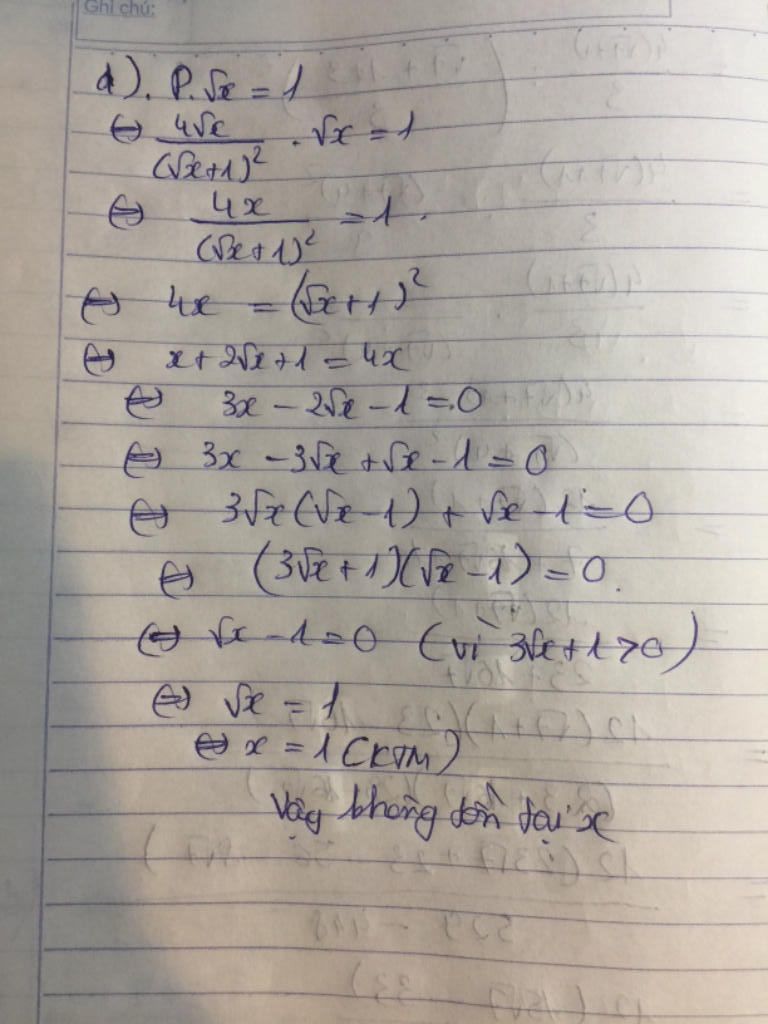 Ghi chú:
d). P.√x = 1
⇔ 4√x / (√x+1)² . √x = 1
⇔ 4x / (√x+1)² = 1.
⇔ 4x = (√x+1)²
⇔ x+2√x+1 = 4x
⇔ 3x - 2√x - 1 = 0
⇔ 3x - 3√x + √x - 1 = 0
⇔ 3√x(√x-1) + √x - 1 = 0
⇔ (3√x+1)(√x-1) = 0.
⇔ √x - 1 = 0 (vì 3√x+1 > 0)
⇔ √x = 1
⇔ x = 1 (KTM)
Vậy không tồn tại x